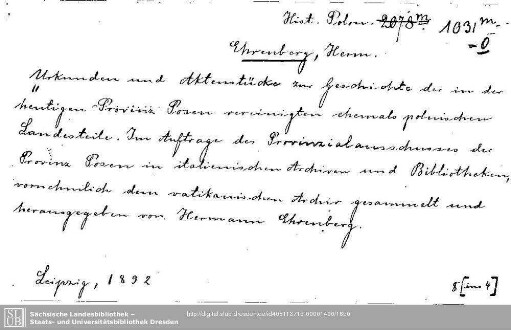 Hist. Polon. 2078 m 1031 m.
-0
Ehrenberg, Herm.
Urkunden und Aktenstücke zur Geschichte der in der
heutigen Provinz Posen vereinigten ehemals polnischen
Landesteile. Im Auftrage des Provinzialausschusses der
Provinz Posen in italienischen Archiven und Bibliotheken,
vornehmlich dem vatikanischen Archiv gesammelt und
herausgegeben von Hermann Ehrenberg.
Leipzig, 1892
8 [in 4]
SLUB
Sächsische Landesbibliothek –
Staats- und Universitätsbibliothek Dresden